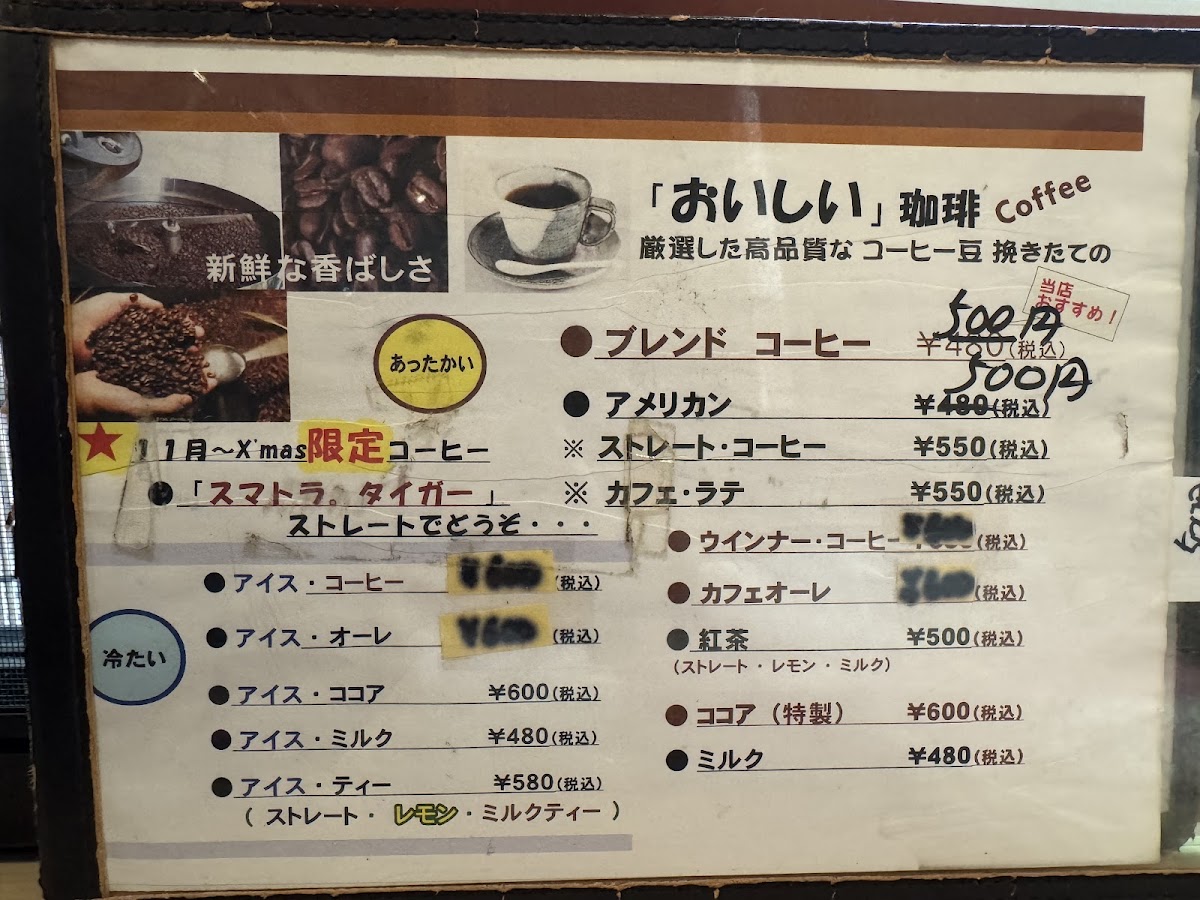 「おいしい」珈琲 Coffee
厳選した高品質な コーヒー豆 挽きたての
新鮮な香ばしさ
当店
おすすめ！
あったかい
500円
●ブレンド コーヒー ¥480(税込)
500円
●アメリカン ¥480(税込)
※ ストレート・コーヒー ¥550(税込)
※ カフェ・ラテ ¥550(税込)
●ウインナー・コーヒー (税込)
●カフェオーレ (税込)
●紅茶 ¥500(税込)
（ストレート・レモン・ミルク）
●ココア（特製） ¥600(税込)
●ミルク ¥480(税込)
★11月～X'mas限定コーヒー
●「スマトラ。タイガー」
ストレートでどうぞ・・・
冷たい
●アイス・コーヒー (税込)
●アイス・オーレ (税込)
●アイス・ココア ¥600(税込)
●アイス・ミルク ¥480(税込)
●アイス・ティー ¥580(税込)
（ストレート・レモン・ミルクティー）